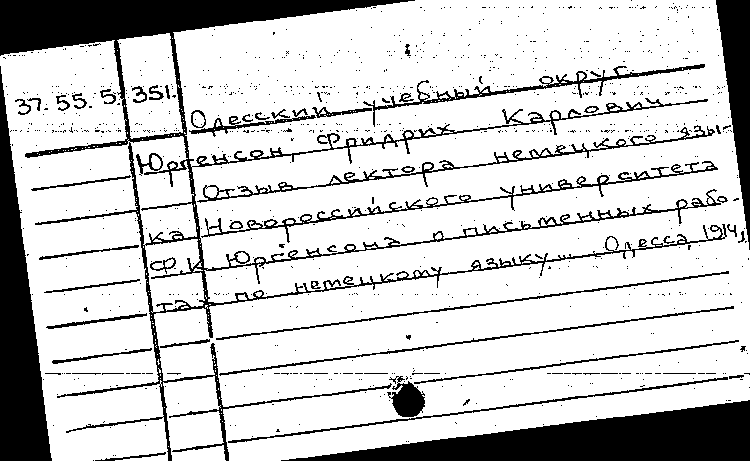 37. 55. 5. 351.
Одесский учебный округ.
Юргенсон, Фридрих Карлович.
Отзыв лектора немецкого язы-
ка Новороссийского университета
Ф.К. Юргенсона о письменных рабо-
тах по немецкому языку... Одесса, 1914,